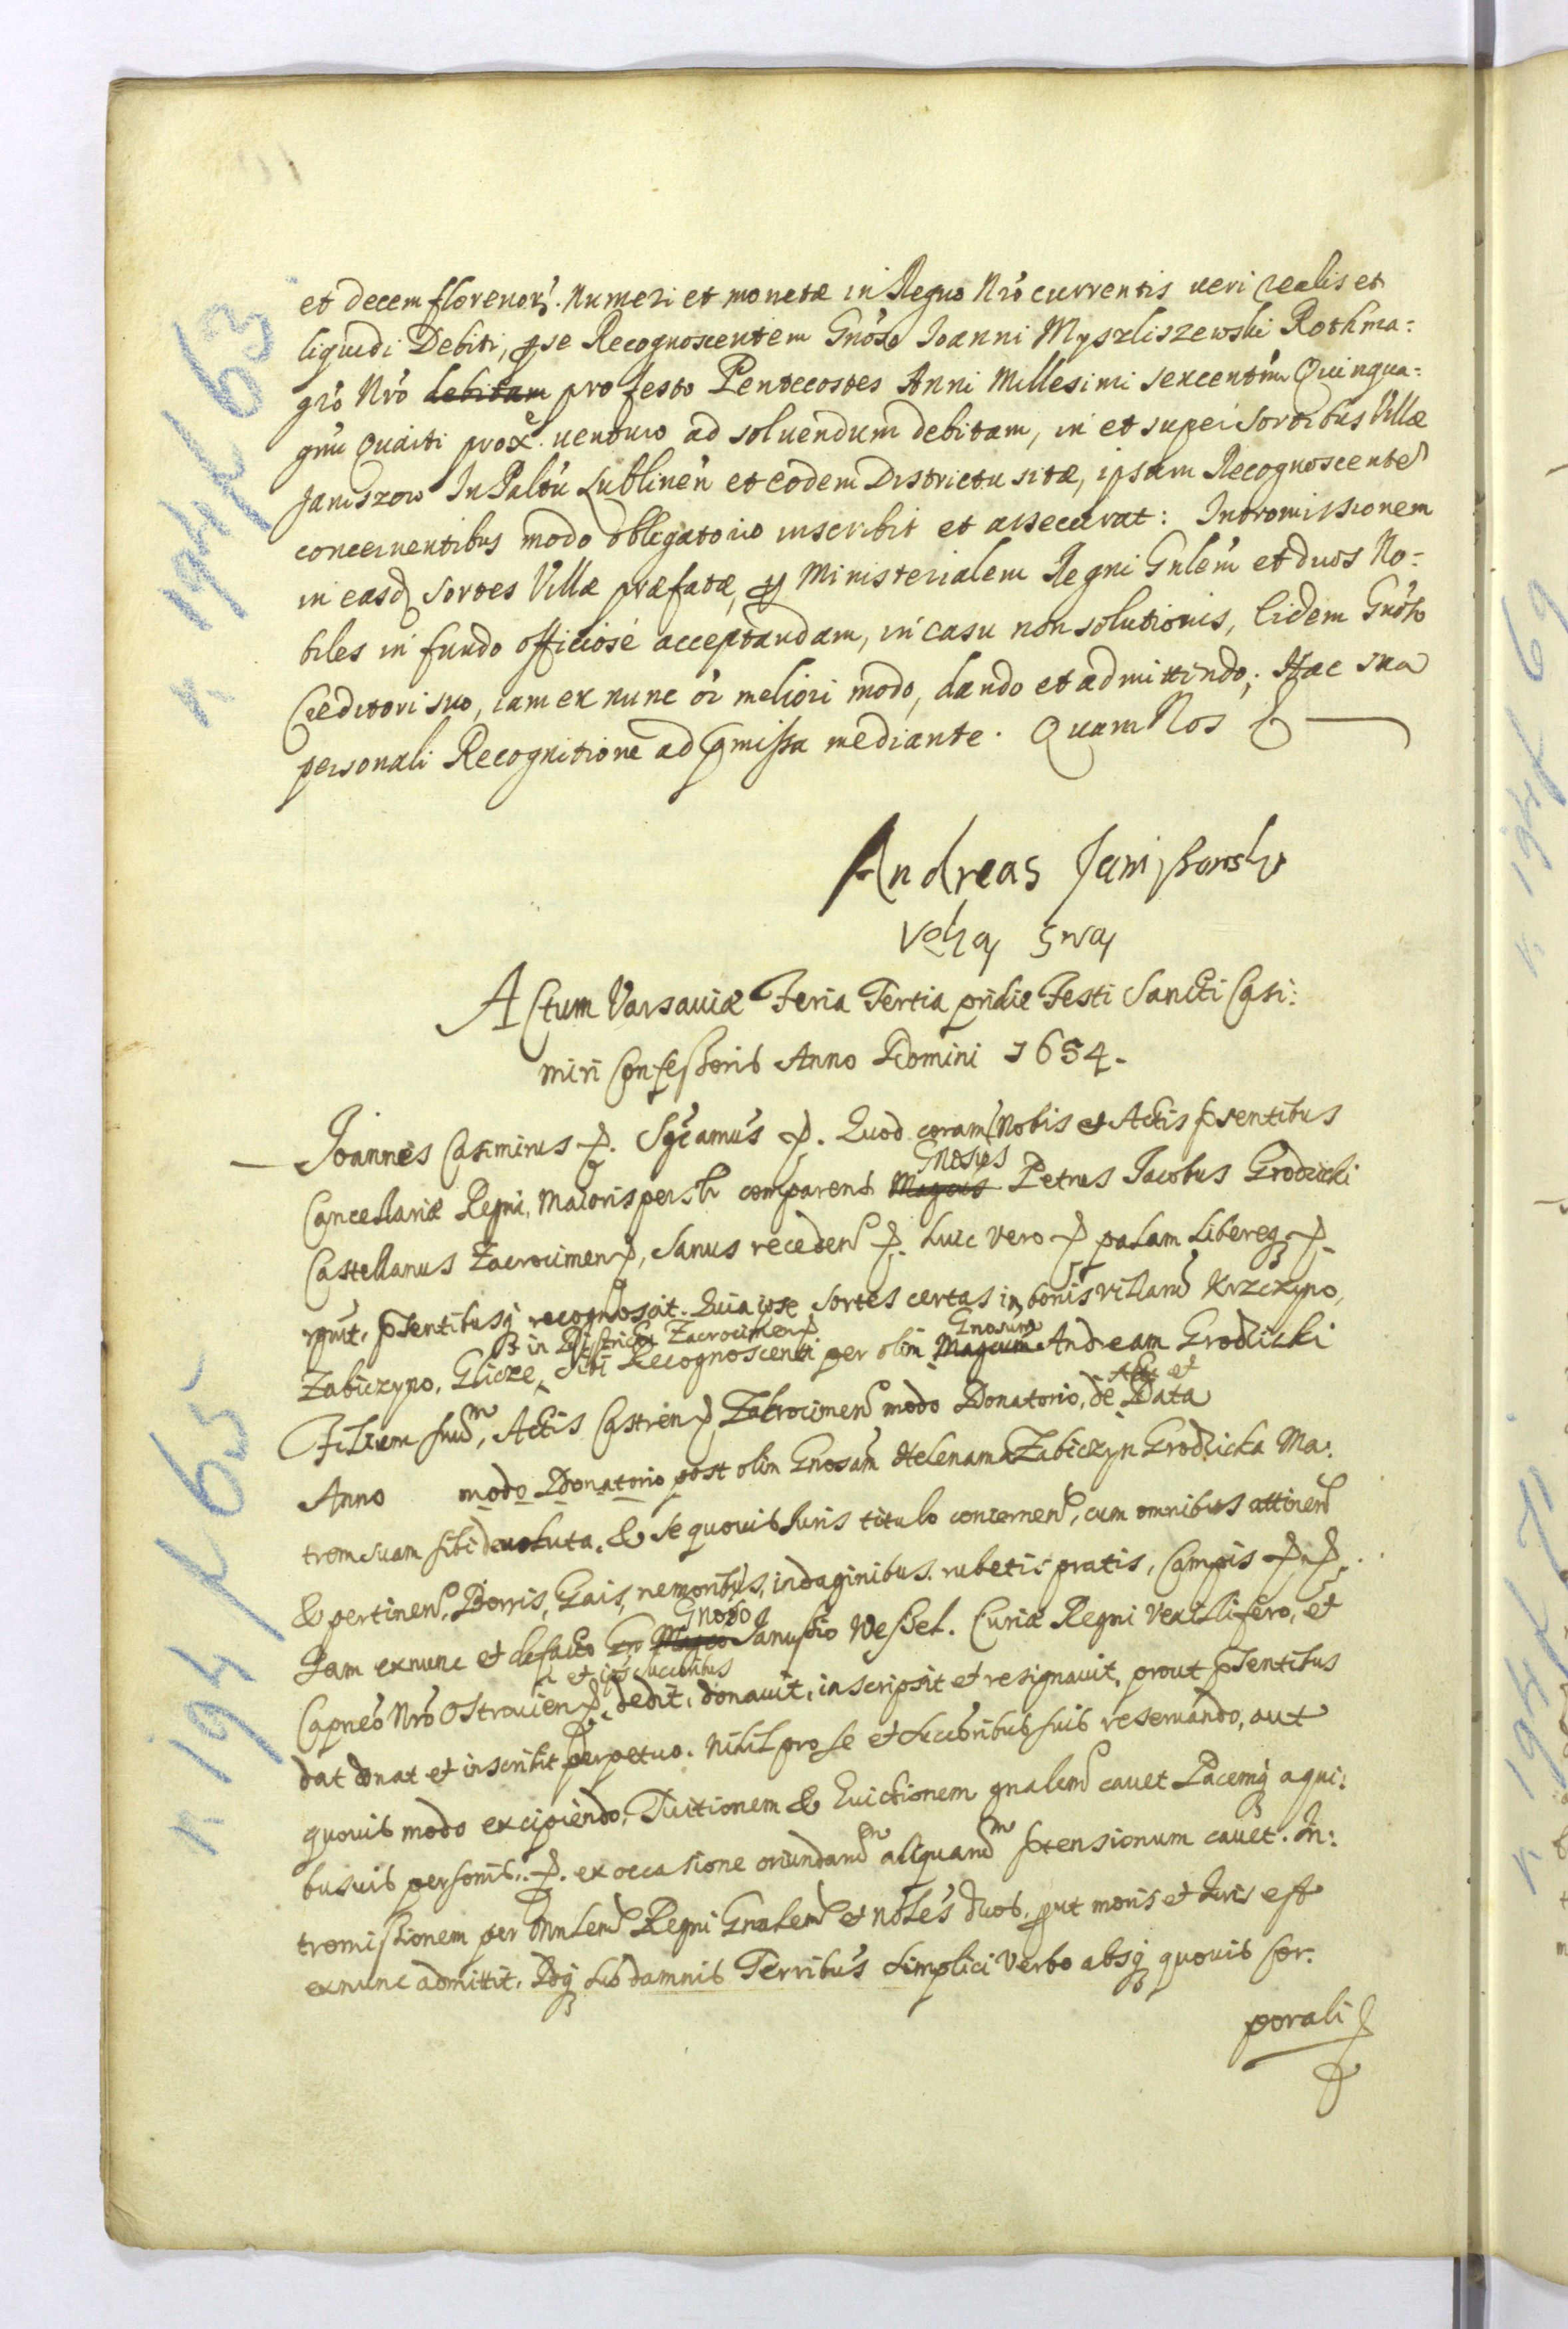 et decem florenor. numeri et monetæ in Regno Nro currentis veri realis et
liquidi Debiti, p se Recognoscentem Gnoso Joanni Myszliszewski Rothma=
gro Nro debitam pro festo Pentecostes Anni Millesimi sexcentmi Quinqua=
gmi Quarti prox. venturo ad solvendum debitam, in et super sortibus Villæ
Janiszow In Paltu Lublinen et eodem Districtu sitæ, ipsum Recognoscente
concernentibus modo obligatorio inscribit et assecurat: Intromissionem
in easd sortes Villæ præfatæ, p Ministerialem Regni Gnlem et duos No=
biles in fundo officiose acceptandam, in casu non solutionis, Eidem Gnoso
Creditori suo, iam ex nunc or meliori modo, dando et admittendo; Hac sua
personali Recognitione ad pmissa mediante. Quam Nos
Andreas Janiszowski
ręką swą
Actum Varsaviæ Feria Tertia pridie Festi Sancti Casi:
miri Confessoris Anno Domini 1654.
Joannes Casimirus. Sgcamus. Quod coram Nobis et Actis psentibus
Gnosus
Cancellariæ Regni, Maioris persltr comparens Magcus Petrus Jacobus Grodzicki
Castellanus Zacrocimen, sanus receden. huic vero palam libereq
rgnvit, psentibusq recognoscit. Quia ipse sortes certas in bonis villarum Krzczyno,
in Districtu Zacrocimen Gnosum
Zabiczyno, Glicze, sibi Recognoscenti per olim Magcum Andream Grodzicki
Actu et
Filium suum, Actis Castren Zakrocimen modo Donatorio, de Data
Anno modo Donatorio post olim Gnosam Helenam Zabiczyn Grodzicka Ma:
trem suam sibi devoluta, & se quovis Juris titulo concernen, cum omnibus attinen
& pertinen, Borris, Gais, nemoribus, indaginibus, rubetis pratis, Campis
Gnoso
Jam exnunc et defacto Gn Magco Janussio Wessel. Curiæ Regni Vexillifero, et
et ips successoribus
Capneo Nro Ostrovien, dedit, donavit, inscripsit et resignavit, prout psentibus
dat donat et inscribit perpetuo. Nihil pro se et successoribus suis reservando, aut
quovis modo excipiendo, Tuitionem & Evictionem gnalem cavet Pacemq a qui:
busvis personis. ex occasione oriundam aliquam prætensionum cavet. In:
tromissionem per Mnlem Regni Gnalem et Nobles duos, put moris et Juris est
exnunc admittit. Idq sub damnis Terribus simplici Verbo absq quovis Cor:
porali
k 194 k 63
k 194 k 65